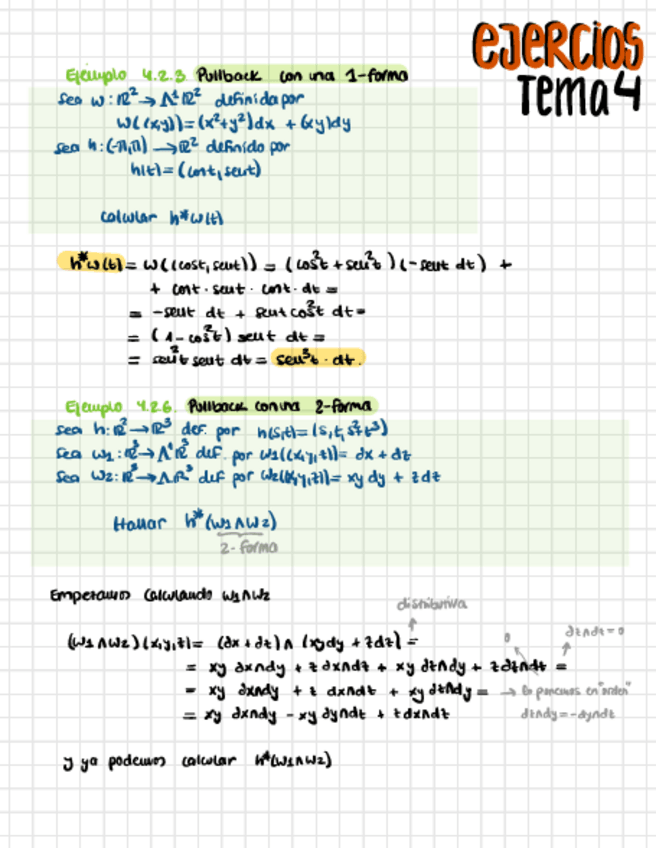 EJERCIOS
Tema 4
Ejemplo 4.2.3 Pullback con una 1-forma
Sea w: ℝ² → Λ¹ℝ² definida por
w((x,y)) = (x²+y²)dx + (xy)dy
sea h: (-π,π) → ℝ² definido por
h(t) = (cost, sent)
calcular h*w(t)
h*w(t) = w((cost, sent)) = (cos²t + sen²t)(-sent dt) +
+ cost · sent · cost · dt =
= -sent dt + sent cos²t dt =
= (1 - cos²t) sent dt =
= sen²t sent dt = sen³t · dt.
Ejemplo 4.2.6. Pullback con una 2-forma
Sea h: ℝ² → ℝ³ def. por h(s,t) = (s, t, s²t³)
Sea w1: ℝ³ → Λ¹ℝ³ def. por w1((x,y,z)) = dx + dz
Sea w2: ℝ³ → Λℝ³ def por w2((x,y,z)) = xy dy + z dz
Hallar h*(w1 ∧ w2)
2-forma
Empezamos calculando w1 ∧ w2
distributiva
(w1 ∧ w2)(x,y,z) = (dx + dz) ∧ (xydy + zdz) =
0 dz∧dz = 0
= xy dx∧dy + z dx∧dz + xy dz∧dy + z dz∧dz =
= xy dx∧dy + z dx∧dz + xy dz∧dy = → lo ponemos en "orden"
= xy dx∧dy - xy dy∧dz + z dx∧dz dz∧dy = -dy∧dz
y ya podemos calcular h*(w1 ∧ w2)